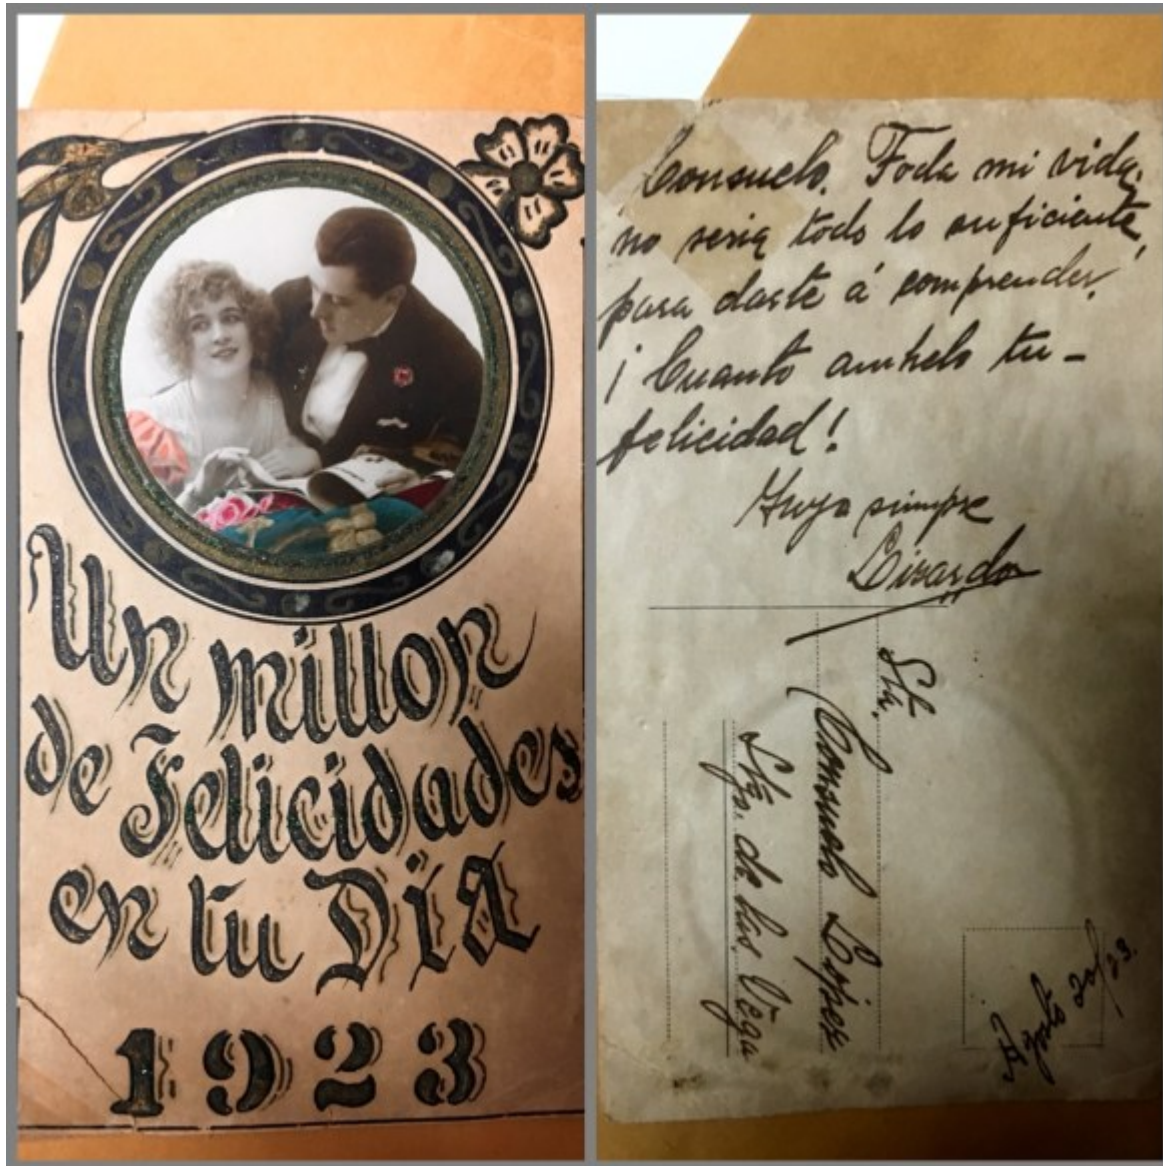 Un millon
de Felicidades
en tu Dia
1923
Consuelo. Toda mi vida,
no seria todo lo suficiente,
para darte á comprender,
¡Cuanto anhelo tu-
felicidad!
Tuyo siempre
Lizardo
Sta.
Consuelo Lopez
Stgo. de las Vegas
Agosto 20/23.